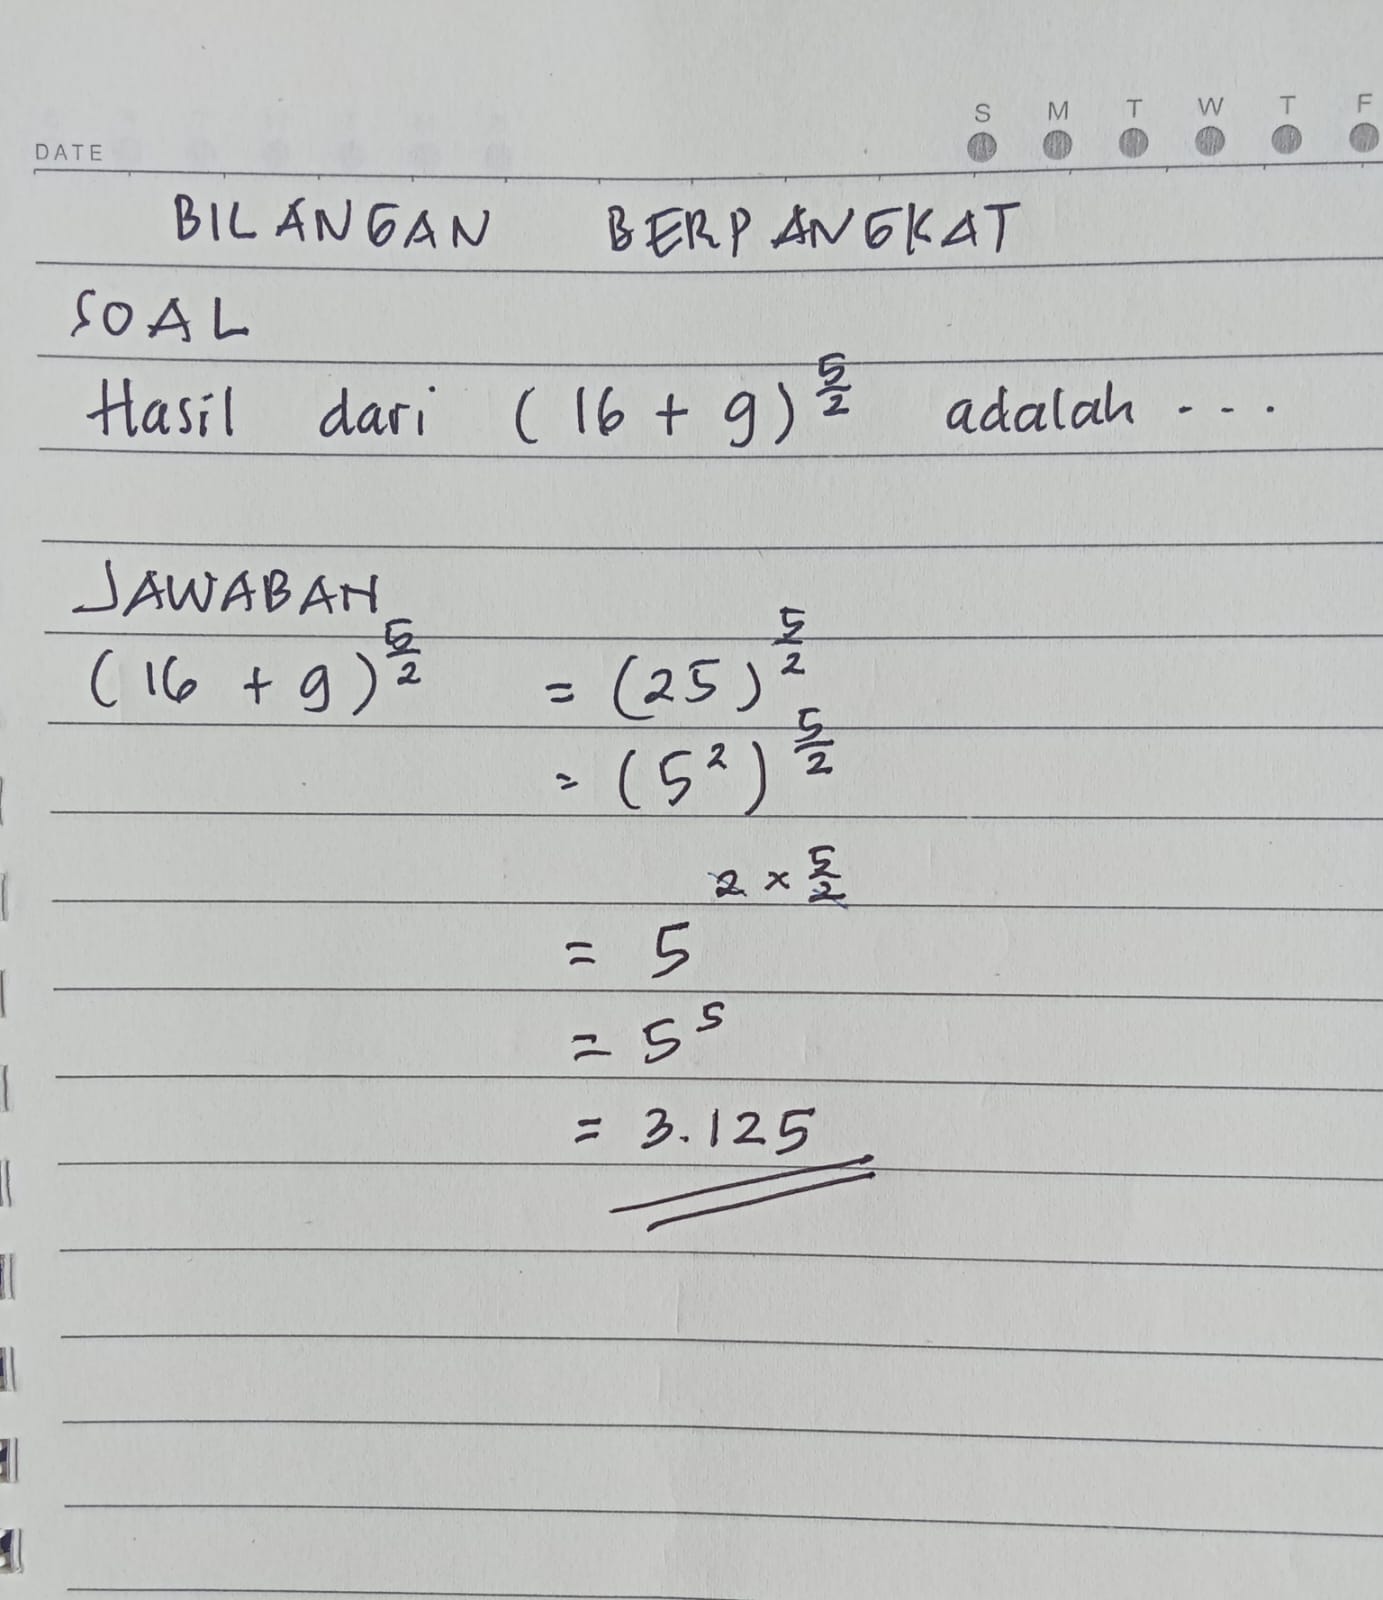 S M T W T F
DATE
BILANGAN BERPANGKAT
SOAL
Hasil dari (16 + 9)^{5/2} adalah ...
JAWABAN
(16 + 9)^{5/2} = (25)^{5/2}
= (5²)^{5/2}
= 5^{2 × 5/2}
= 5⁵
= 3.125